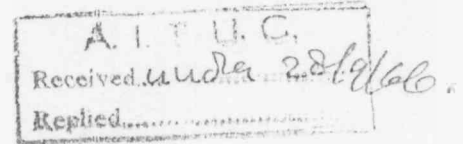 A. I. T. U. C.
Received 28/9/66.
Replied